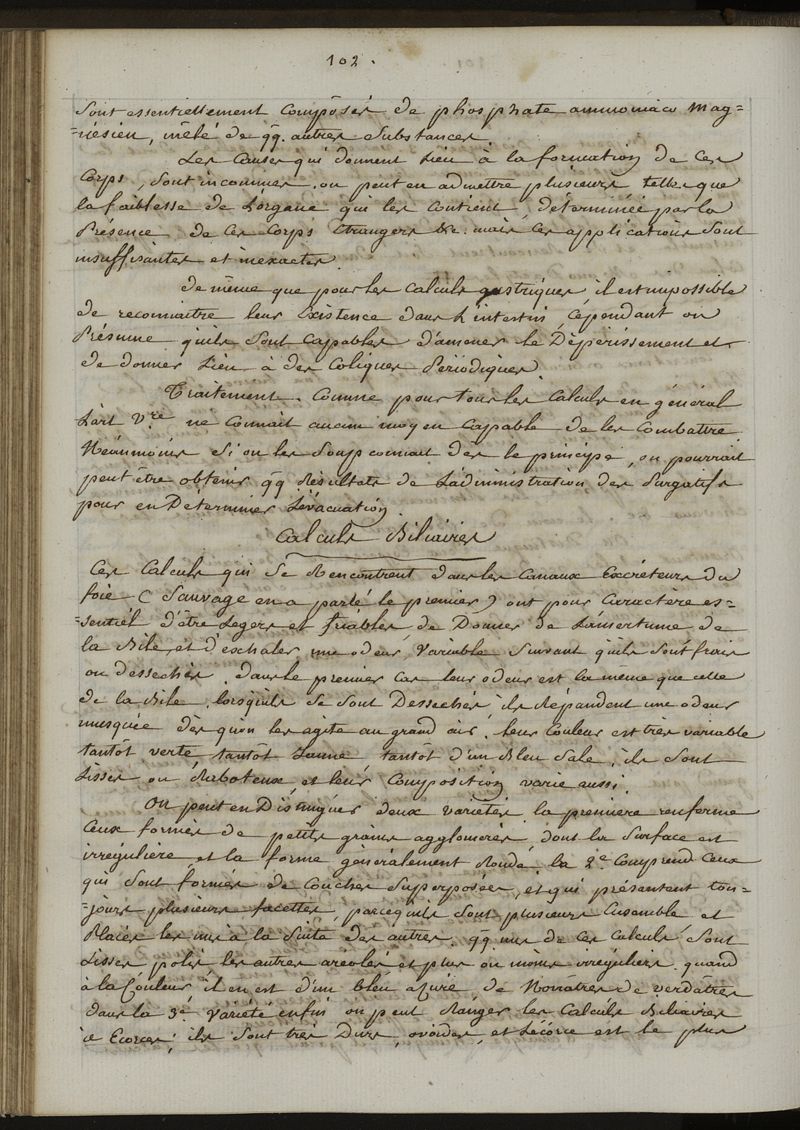 102.
sont essentiellement composés de phosphate ammoniaco mag=
=nésien, mêlé de qq. autres substances.
Les causes qui donnent lieu à la formation de ces
corps, sont inconnues. on peut en admettre plusieurs telles que
la faiblesse de l'organe qui les contient, déterminée par la
Présence de ces corps étrangers &c. mais ces applications sont
insuffisantes et inexactes.
de même que pour les calculs gastriques, il est impossible
de reconnaitre leur Existence dans l'intestin, cependant on
Présume qu'ils sont capables d'amener le Dépérissement et
de donner lieu à des coliques Périodiques.
Traitement. Comme pour tous les calculs en général
L'art V.re ne connait aucun moyen capable de les combattre.
Néanmoins si on les soupconnait dès le principe, on pourrait
peut être obtenir qq Résultats de L'administration des Purgatifs
pour en Déterminer L'évacuation.
Calculs Biliaires
Ces calculs qui se Rencontrent dans les canaux Excréteurs du
foie (Sauvage en a parlé le premier) ont pour caractère es=
=sentiel d'être Legers et friables, de Donner de L'amertume de
la Bile, et d'exhaler une odeur variable suivant qu'ils sont frais
ou desséchés. dans le premier cas leur odeur est la même que celle
de la Bile, lorsqu'ils se sont Desséchés, ils Répandent une odeur
musquée dès qu'on les agite au grand air. leur couleur est très variable
tantôt verte, tantôt Jaune, tantôt d'un Bleu sale, ils sont
Lisses ou Raboteux, et leur composition varie aussi.
On peut en Distinguer deux variétés, la premiere renferme
ceux formés de petits grains agglomérés, dont la surface est
irrégulière et la forme généralement Ronde. la 2e comprend ceux
qui sont formés de couches superposées, et qui présentent tou=
=jours plusieurs facettes, parcequ'ils sont plusieurs Ensemble et
Placés les uns à la suite des autres. qq uns de ces calculs sont
Lisses polis, les autres aréolés et plus ou moins irréguliers. quand
à la Couleur il en est d'un bleu azuré, de Noirâtres de verdâtres
dans la 3e variété enfin on peut Ranger les Calculs Biliaires
à Ecorces; ils sont très Durs, ovoïdes, et L'écorce est le plus